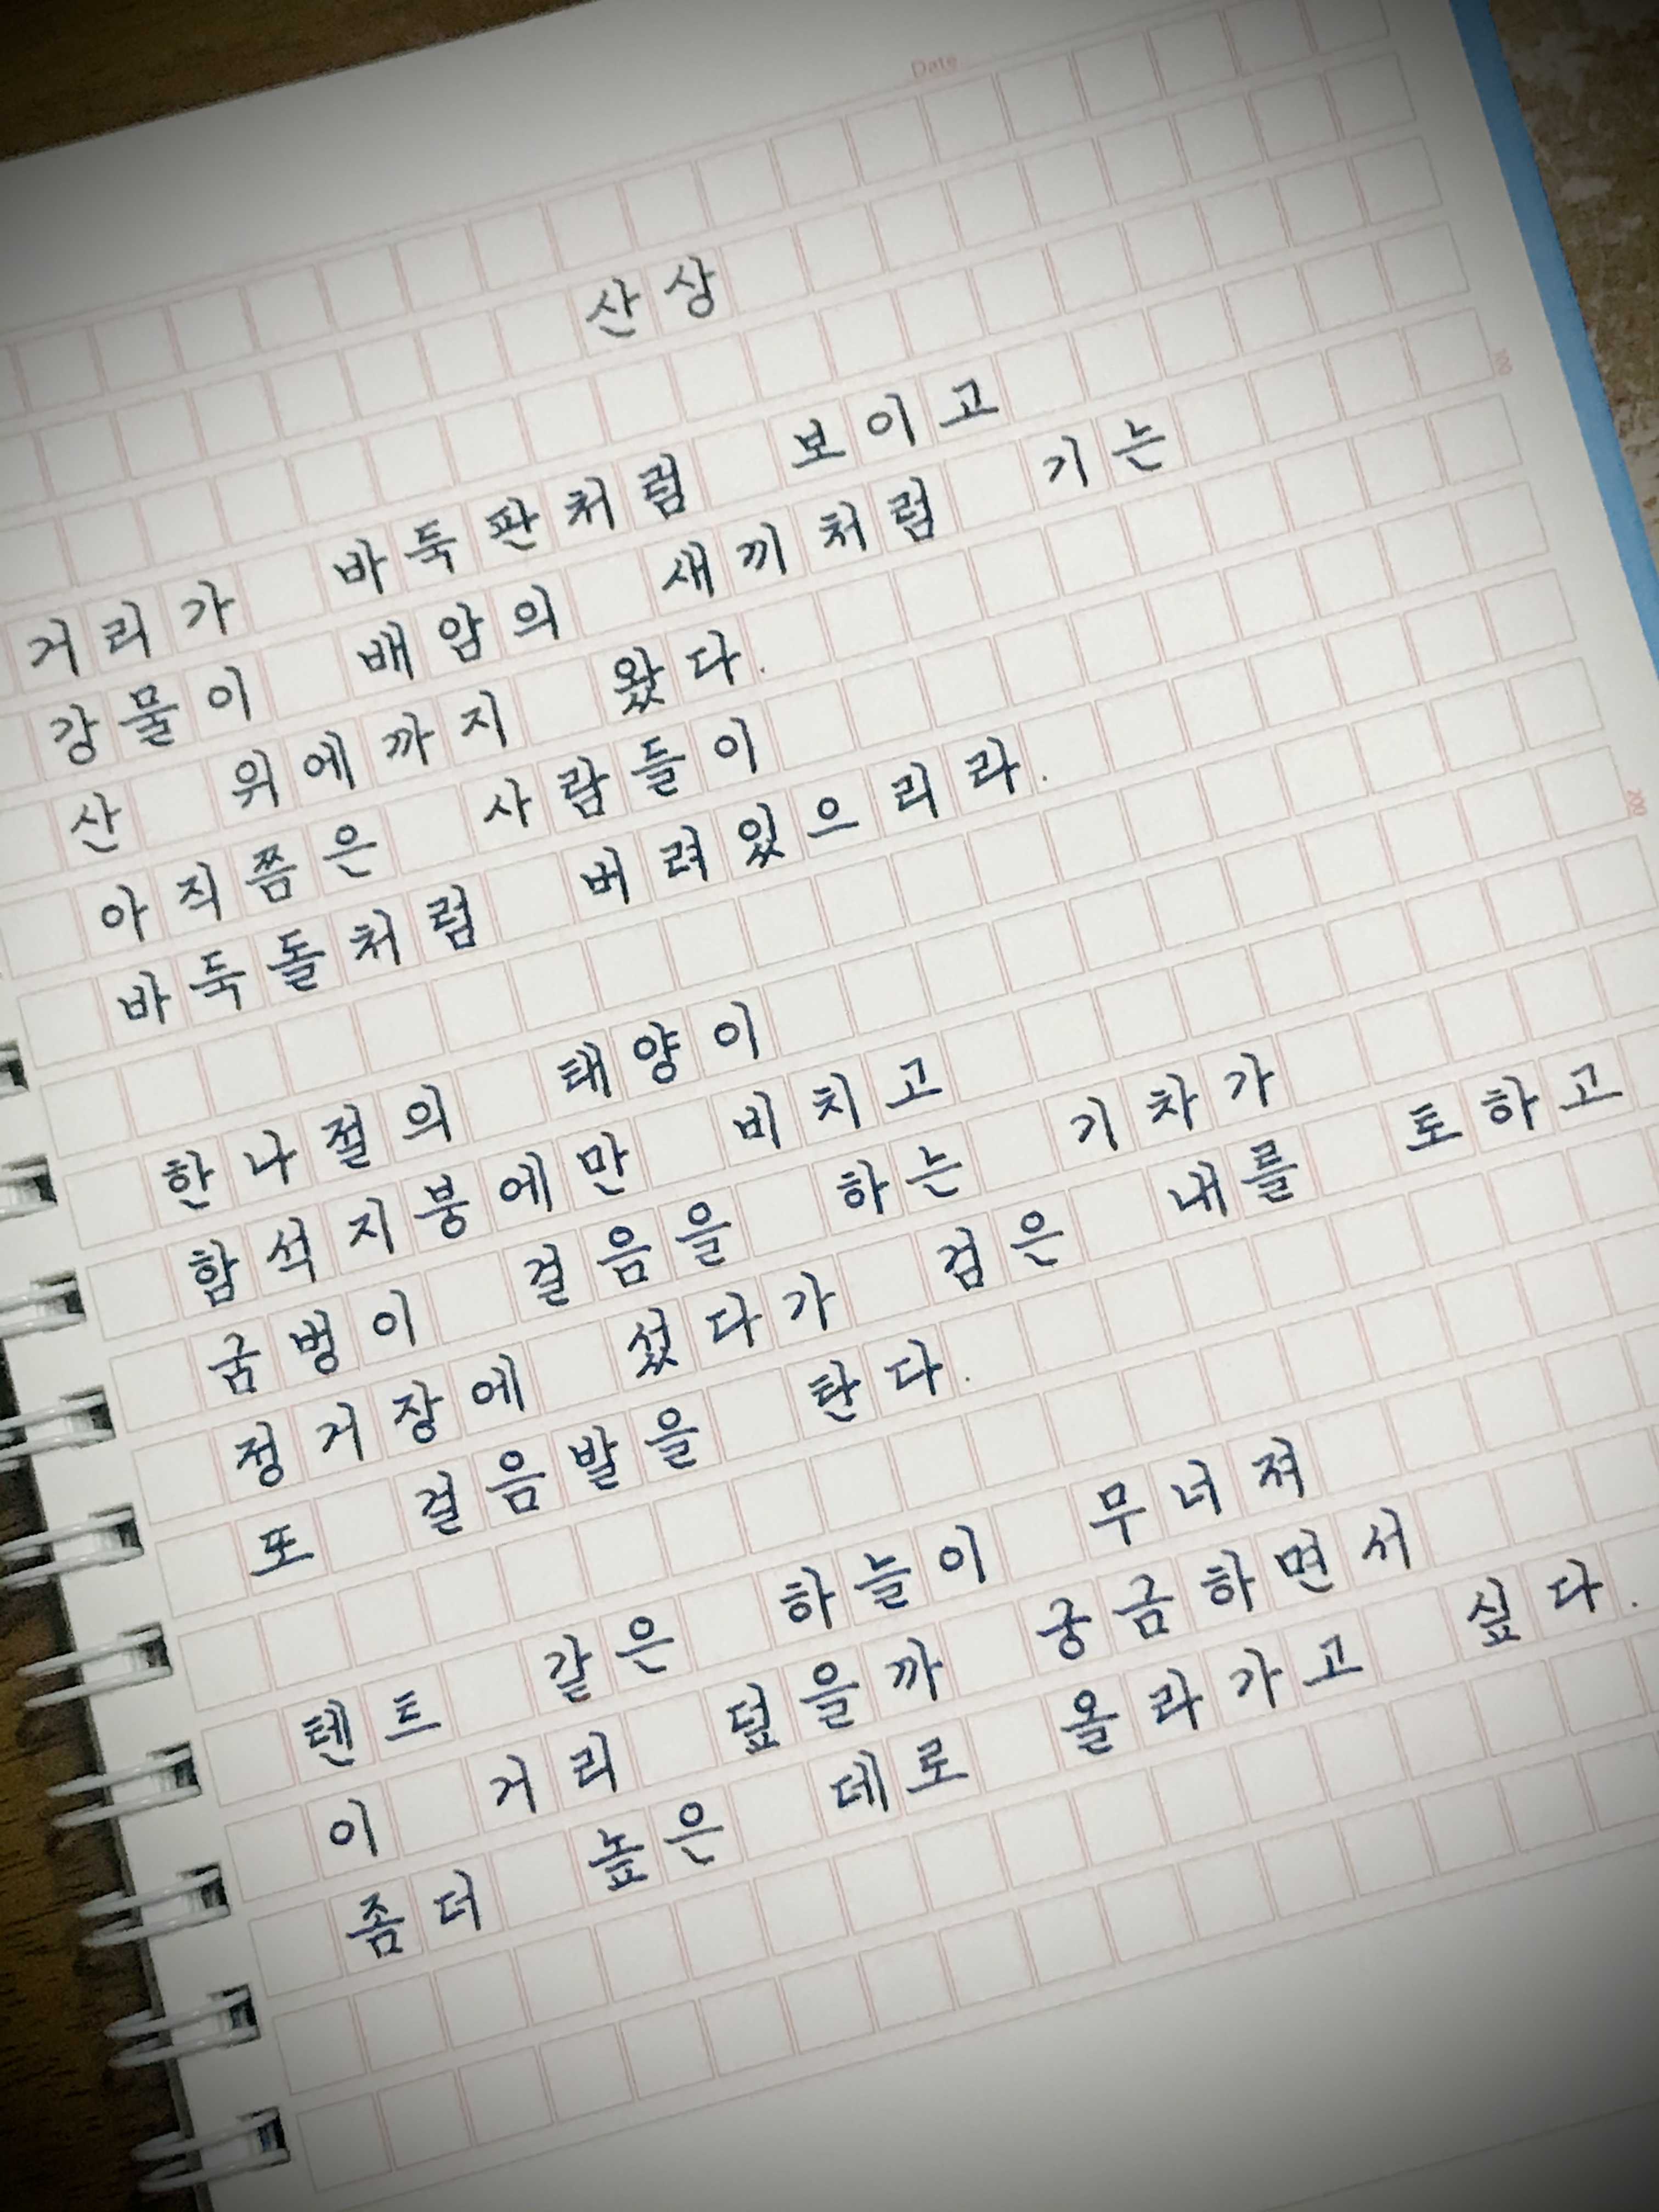 Date
산상
거리가 바둑판처럼 보이고
강물이 배암의 새끼처럼 기는
산 위에까지 왔다.
아직쯤은 사람들이
바둑돌처럼 버려있으리라.
한나절의 태양이
함석지붕에만 비치고
굼벙이 걸음을 하는 기차가
정거장에 섰다가 검은 내를 토하고
또 걸음발을 탄다.
텐트 같은 하늘이 무너져
이 거리 덮을까 궁금하면서
좀더 높은 데로 올라가고 싶다.
200